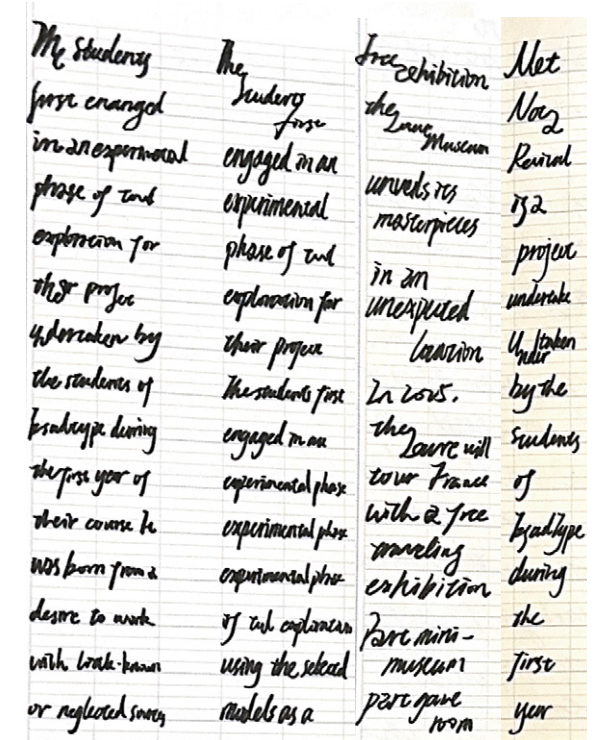 The students
first enanged
in an experimental
phase of tool
exploration for
their projec
undertaken by
the students of
EsadType during
the first year of
their course It
was born from a
desire to work
with little-known
or neglected sources
The
students
first
engaged in an
experimental
phase of tool
exploration for
their project
The students first
engaged in an
experimental phase
experimental phase
experimental phase
of tool exploration
using the selected
models as a
free
exhibition
the
Louvre
Museum
unveils its
masterpieces
in an
unexpected
location
In 2025,
the
Louvre will
tour France
with a free
traveling
exhibition
Part mini-
museum
part game
room
Met
Nog
Revival
is a
project
undertake
Undertaken
by the
students
of
EsadType
during
the
first
year